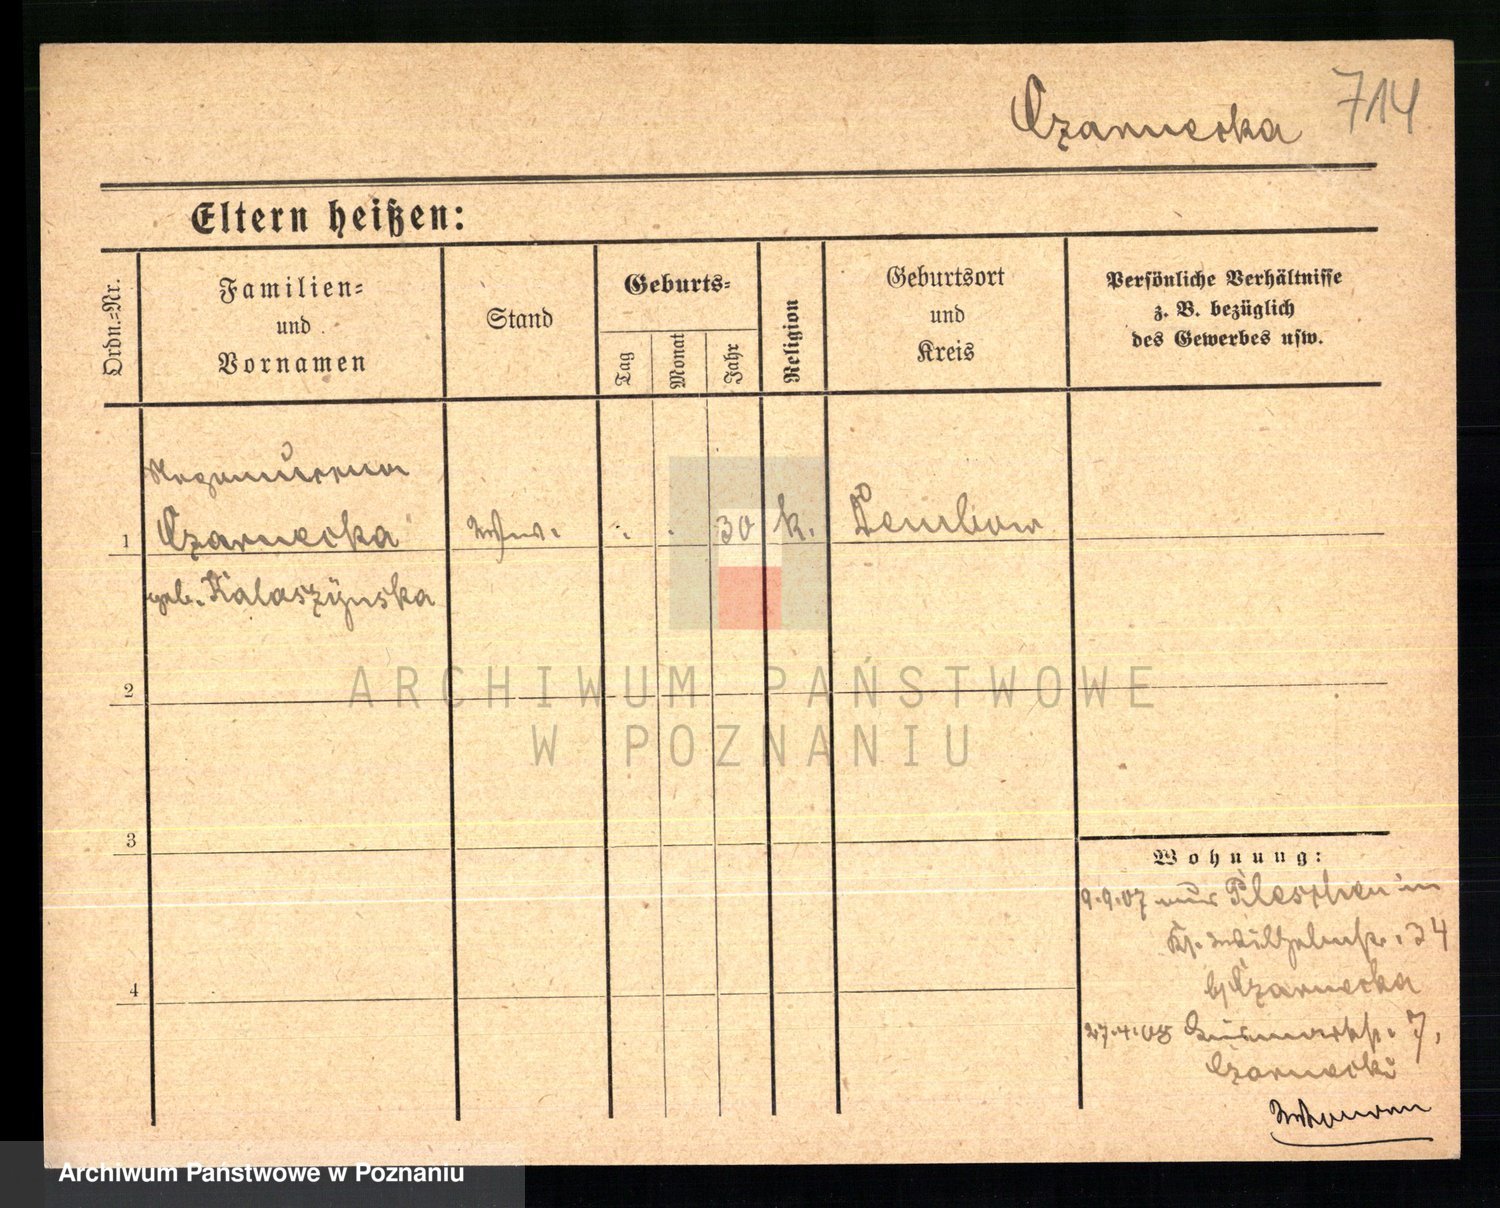 Czarnecka 714
Eltern heißen:
Ordn.-Nr.
Familien-
und
Vornamen
Stand
Geburts-
Tag
Monat
Jahr
Religion
Geburtsort
und
Kreis
Persönliche Verhältnisse
z. B. bezüglich
des Gewerbes usw.
1
Czarnecka
Ww. 30 k. Dembow
geb. Kalaszynska
2
3
4
Wohnung:
9.9.07 aus Pleschen in
Wilhelmstr. 34
b/ Czarnecka
27.4.08 7,
Czarnecki
ARCHIWUM PAŃSTWOWE
W POZNANIU
Archiwum Państwowe w Poznaniu